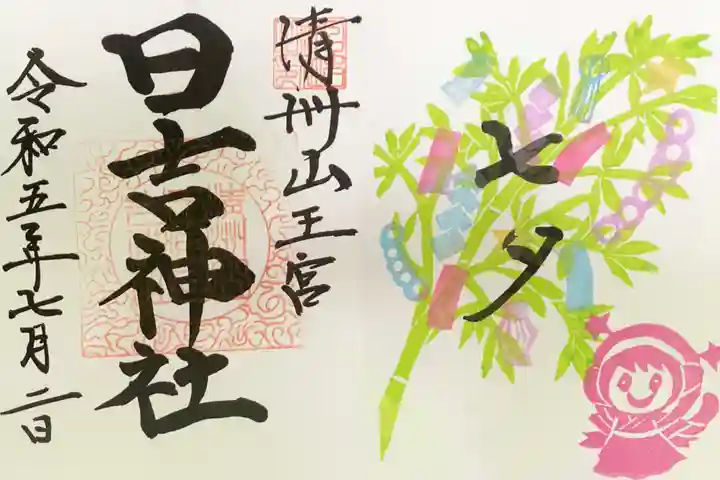 七夕
清州山王宮
日吉神社
令和五年七月二日